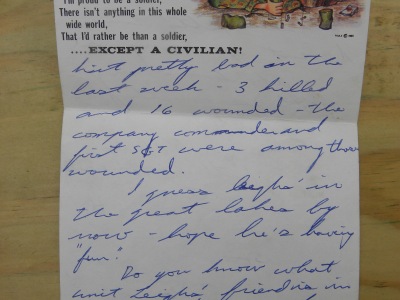 I'm proud to be a soldier,
There isn't anything in this whole
wide world,
That I'd rather be than a soldier,
....EXCEPT A CIVILIAN!
hist pretty bad in the
last week - 3 killed
and 16 wounded - the
company commander and
first SGT were among those
wounded.
I guess Leighs' in
the great lakes by
now - hope he's having
"fun."
Do you know what
unit Leighs' friend is in